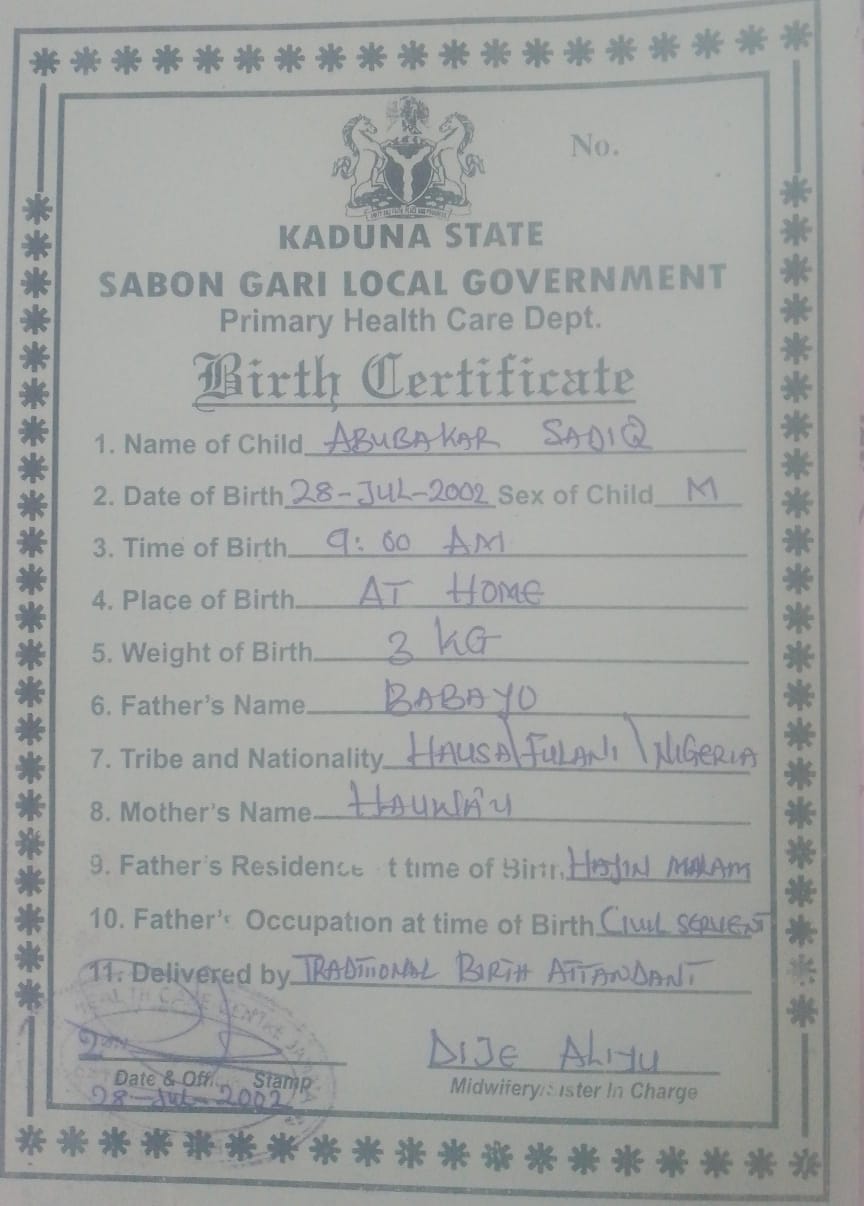 No.
KADUNA STATE
SABON GARI LOCAL GOVERNMENT
Primary Health Care Dept.
Birth Certificate
1. Name of Child ABUBAKAR SADIQ
2. Date of Birth 28-JUL-2002 Sex of Child M
3. Time of Birth 9:00 AM
4. Place of Birth AT HOME
5. Weight of Birth 3 KG
6. Father's Name BABAYO
7. Tribe and Nationality HAUSA\FULANI \NIGERIA
8. Mother's Name HAUWA'U
9. Father's Residence t time of Birth HAJIN MALAM
10. Father's Occupation at time of Birth CIVIL SERVENT
11. Delivered by TRADITIONAL BIRTH ATTANDANT
HEALTH CARE CENTRE
DIJE ALIYU
Date & Off... Stamp Midwifery/Sister In Charge
28-JUL-2002